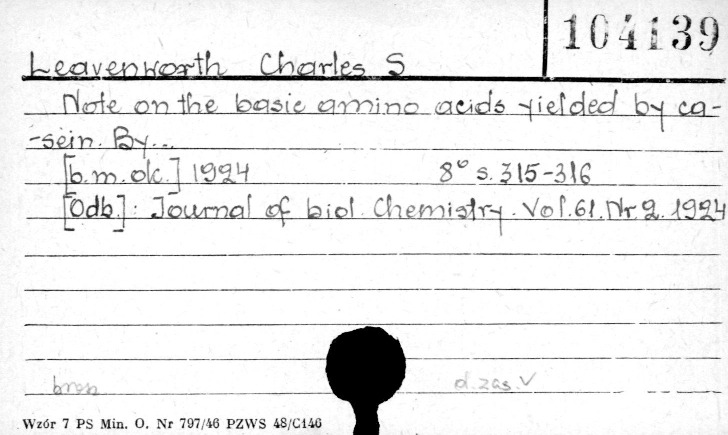 104139
Leavenworth Charles S
Note on the basic amino acids yielded by ca-
-sein. By...
[b.m.ok.] 1924 8° s. 315-316
[Odb.]: Journal of biol. Chemistry. Vol. 61. Nr. 2. 1924
brosz d. zas. V
Wzór 7 PS Min. O. Nr 797/46 PZWS 48/C146